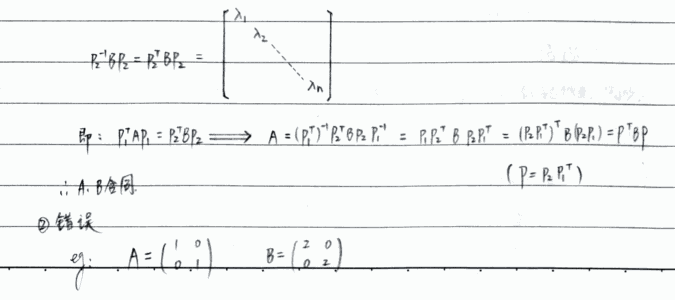 P₂⁻¹BP₂ = P₂ᵀBP₂ = [λ₁ λ₂ ⋱ λₙ]
即: P₁ᵀAP₁ = P₂ᵀBP₂ ⟹ A = (P₁ᵀ)⁻¹P₂ᵀBP₂P₁⁻¹ = P₁P₂ᵀ B P₂P₁ᵀ = (P₂P₁ᵀ)ᵀB(P₂P₁) = PᵀBP
(P = P₂P₁ᵀ)
∴ A、B合同.
② 错误
eg: A = (1 0 0 1) B = (2 0 0 2)